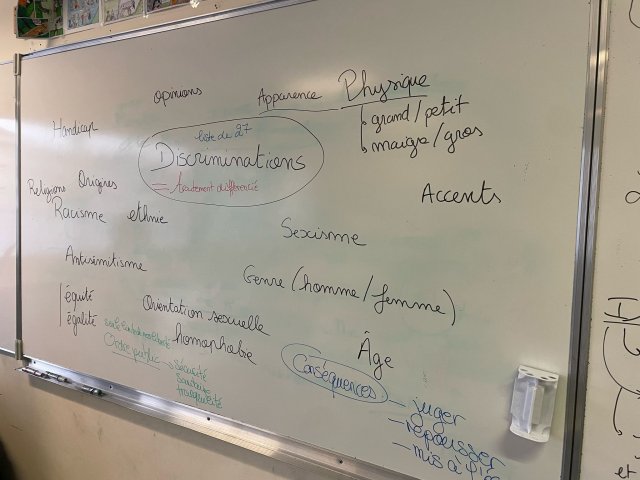 Opinions
Apparence Physique
grand/petit
maigre/gros
Handicap
liste de 27
Discriminations
= traitement différencié
Religions Origines
Accents
Racisme ethnie
Sexisme
Antisémitisme
Genre (homme/femme)
équité
égalité
Orientation sexuelle
homophobie
Âge
Ordre public
Sécurité
Tranquillité
Conséquences
juger
repousser
mis à
et